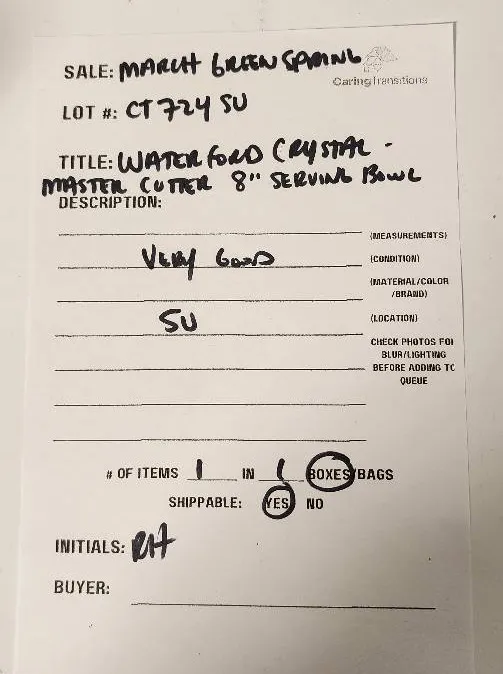 SALE: MARCH GREEN SPRING
CaringTransitions
LOT #: CT 724 SU
TITLE: WATERFORD CRYSTAL -
MASTER CUTTER 8" SERVING BOWL
DESCRIPTION:
(MEASUREMENTS)
VERY GOOD (CONDITION)
(MATERIAL/COLOR
/BRAND)
SU (LOCATION)
CHECK PHOTOS FOR
BLUR/LIGHTING
BEFORE ADDING TO
QUEUE
# OF ITEMS 1 IN 1 BOXES/BAGS
SHIPPABLE: YES NO
INITIALS: RH
BUYER: